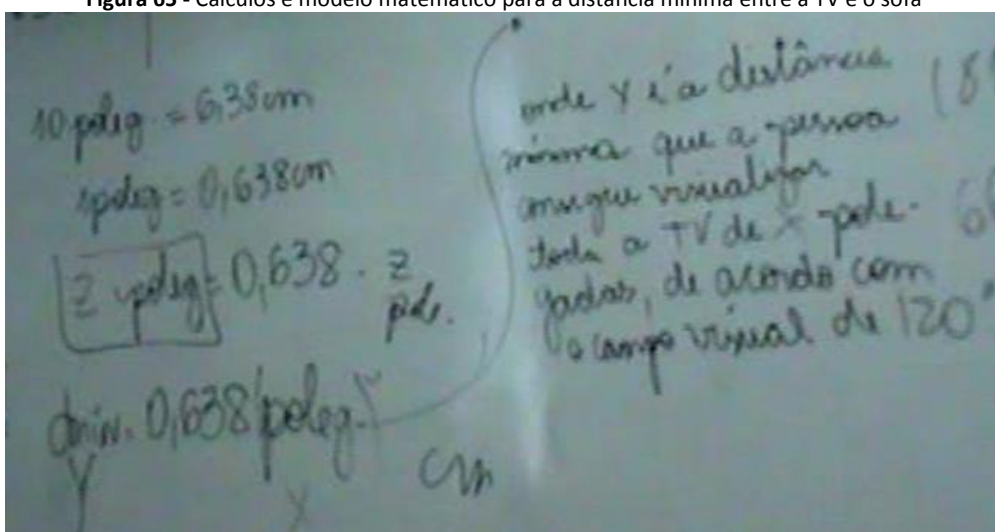 Figura 65 - Cálculos e modelo matemático para a distância mínima entre a TV e o sofá
10 poleg = 6,38 cm
1 poleg = 0,638 cm
z poleg = 0,638 . z
pole.
dmin. 0,638 (poleg.)
Y X cm
onde y é a distância
mínima que a pessoa
consegue visualizar
toda a TV de X pole-
gadas, de acordo com
o campo visual de 120°